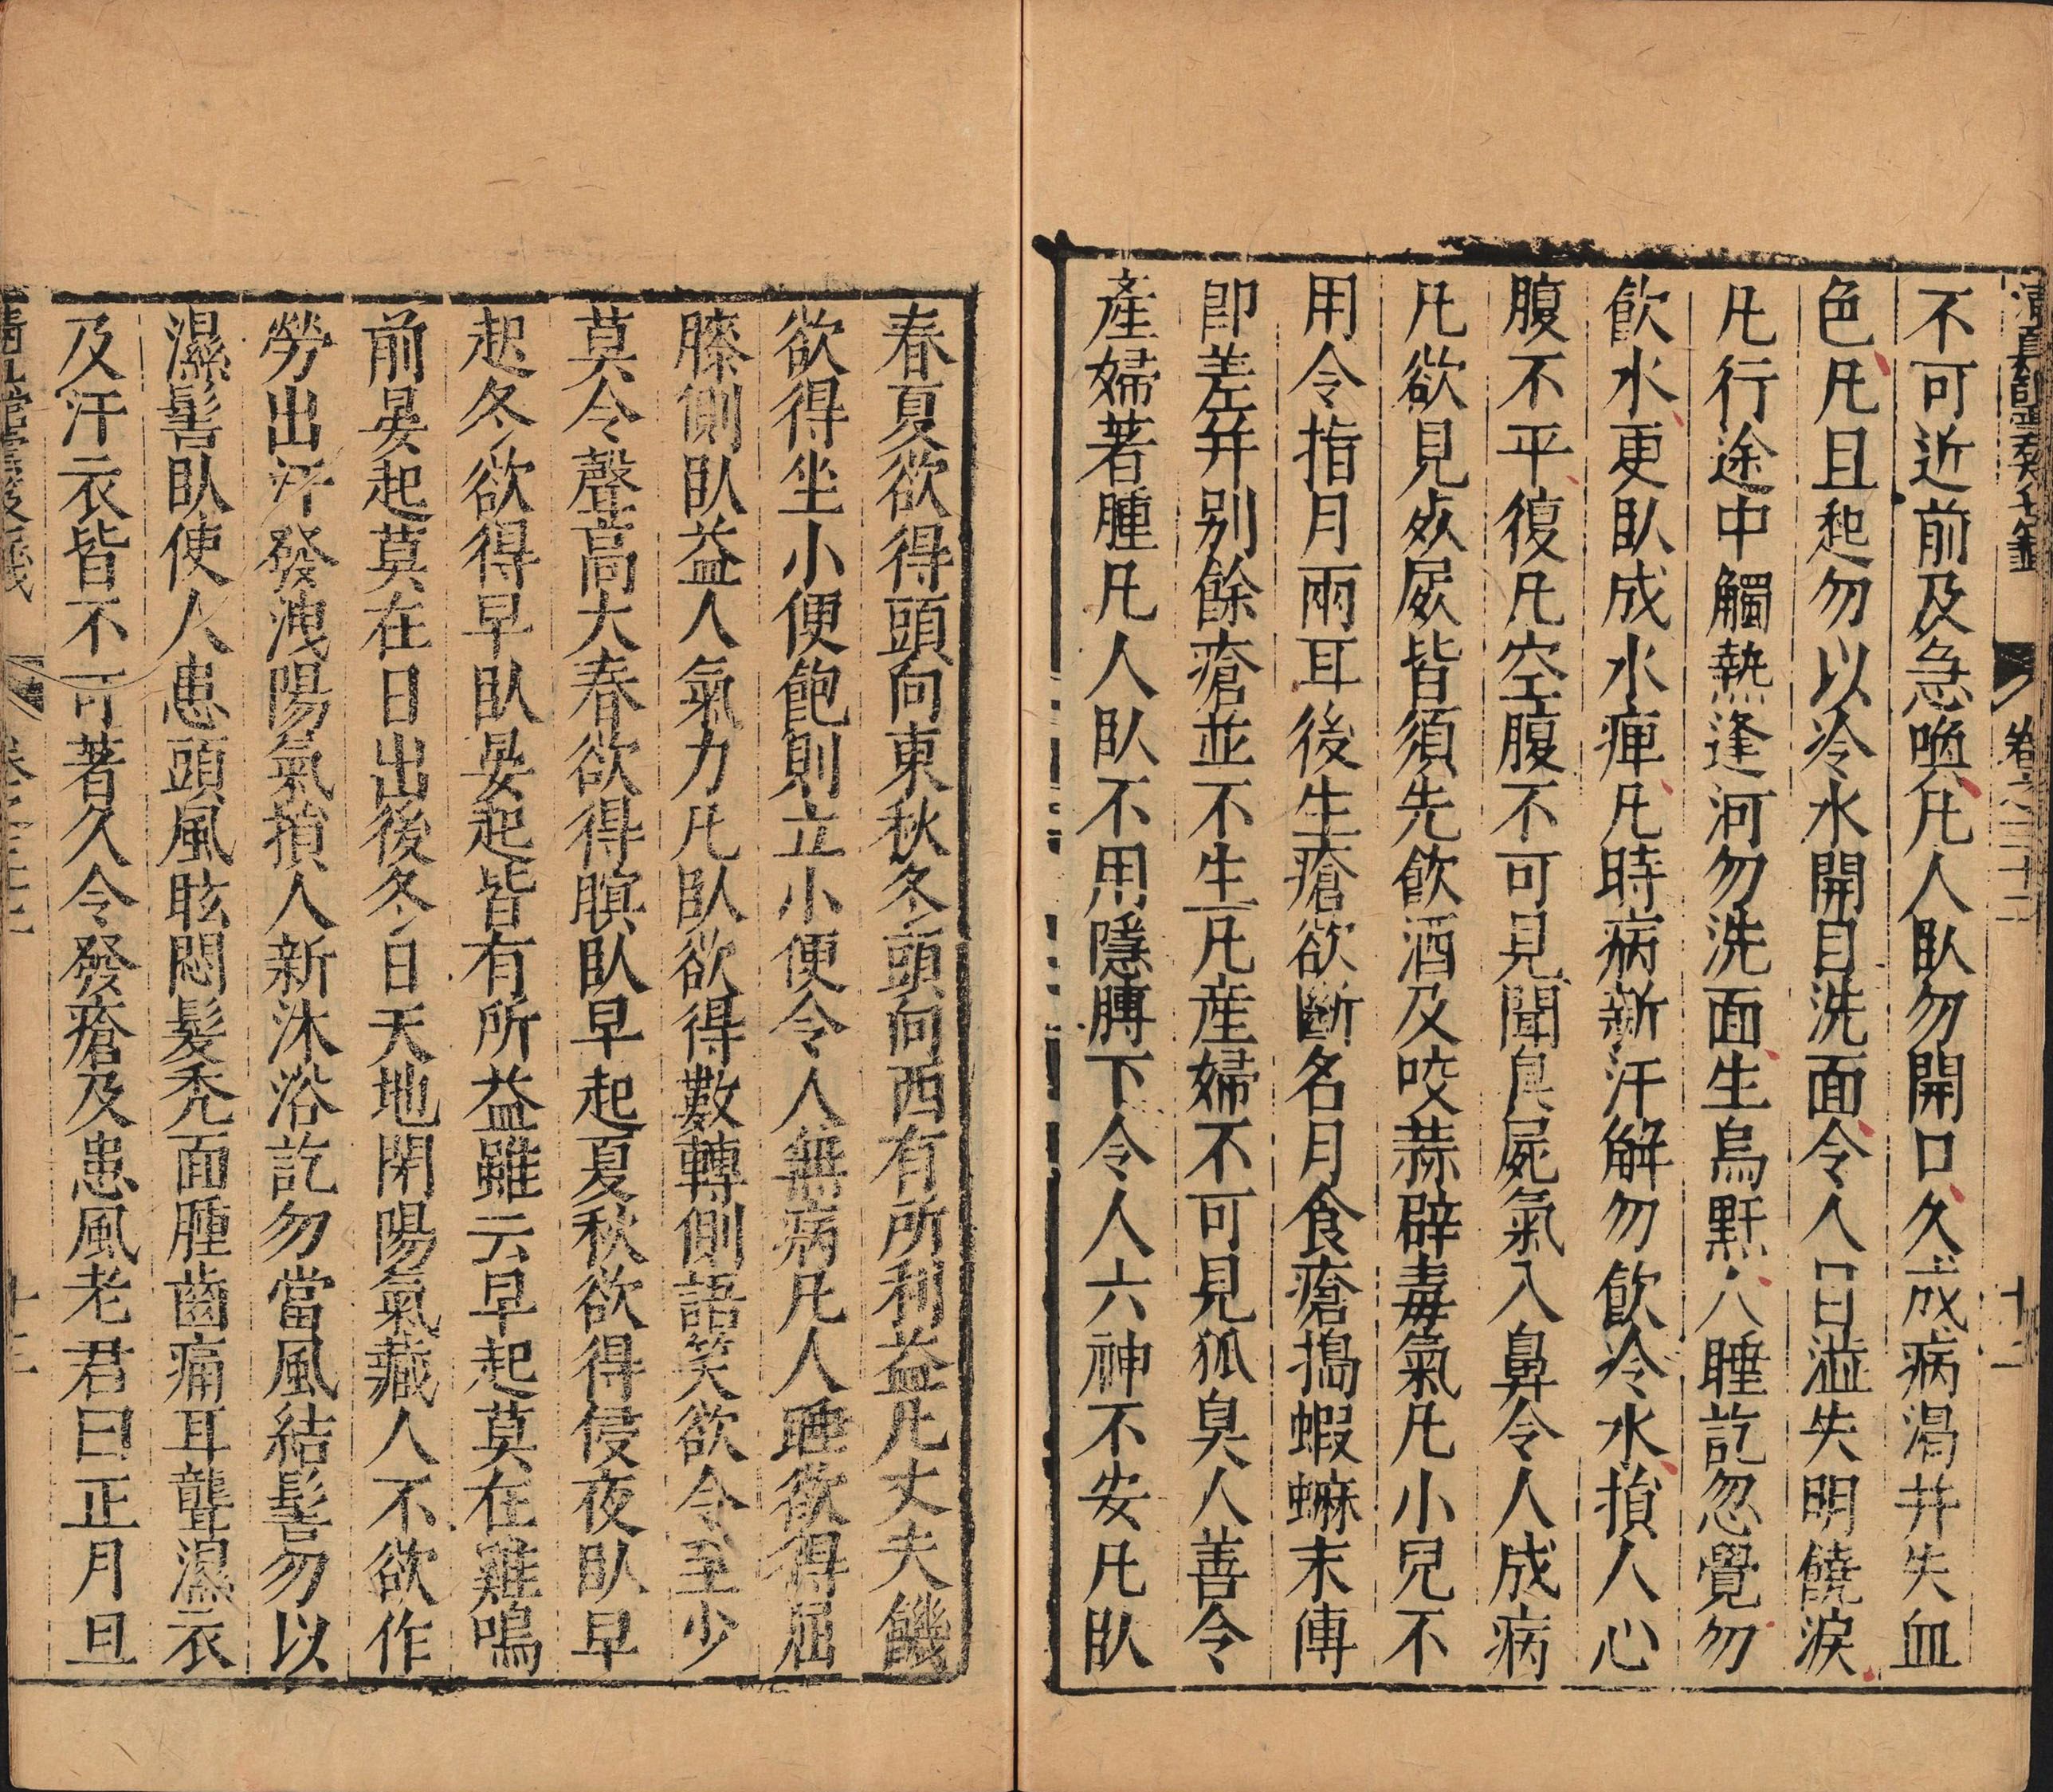 不可近前及急喚凡人臥勿開口久成病渴并失血
色凡旦起勿以冷水開目洗面令人目澁失明饒淚
凡行途中觸熱逢河勿洗面生烏䵟人睡訖忽覺勿
飲水更臥成水痺凡時病新汗解勿飲冷水損人心
腹不平復凡空腹不可見聞臭屍氣入鼻令人成病
凡欲見死屍皆須先飲酒及咬蒜辟毒氣凡小兒不
用令指月兩耳後生瘡欲斷名月食瘡搗蝦蟆末傅
即差并别餘瘡並不生凡產婦不可見狐臭人善令
產婦著腫凡人臥不用隱膊下令人六神不安凡臥
春夏欲得頭向東秋冬頭向西有所利益凡丈夫饑
欲得坐小便飽則立小便令人無病凡人睡欲得屈
膝側臥益人氣力凡臥欲得數轉側語笑欲令至少
莫令聲高大春欲得瞑臥早起夏秋欲得侵夜臥早
起冬欲得早臥晏起皆有所益雖云早起莫在雞鳴
前晏起莫在日出後冬日天地閉陽氣藏人不欲作
勞出汗發洩陽氣損人新沐浴訖勿當風結髻勿以
濕髻臥使人患頭風眩悶髮禿面腫齒痛耳聾濕衣
及汗衣皆不可著久令發瘡及患風老君曰正月旦